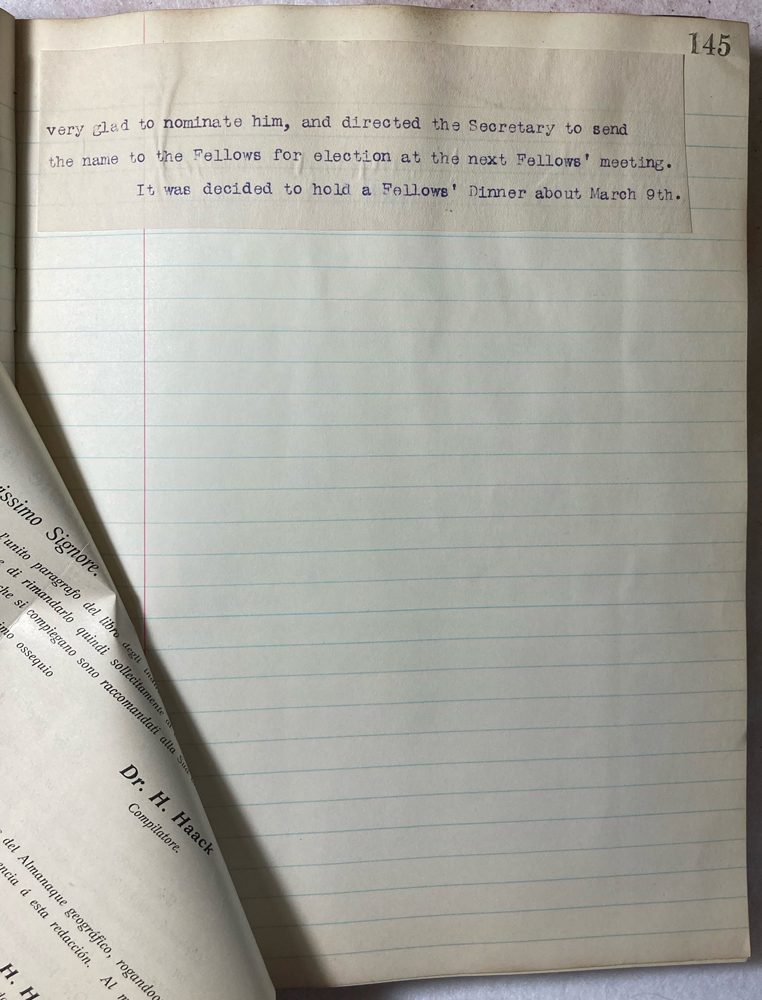 145
very glad to nominate him, and directed the Secretary to send
the name to the Fellows for election at the next Fellows' meeting.
It was decided to hold a Fellows' Dinner about March 9th.
Signore.
l'unito paragrafo del libro degli
di rimandarlo quindi sollecitamente
che si compiegano sono raccomandati alla
ossequio
Dr. H. Haack
Compilatore.
del Almanaque geográfico, rogando
á esta redacción. Al
H.